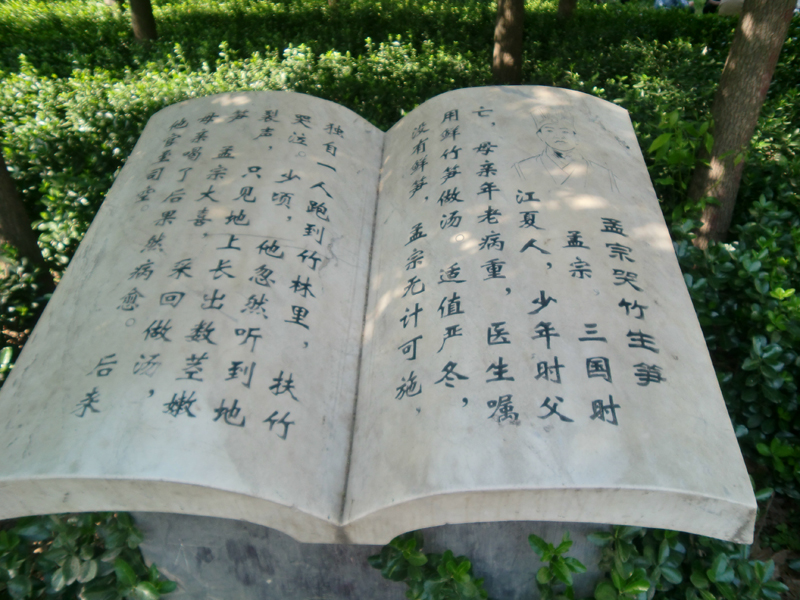 孟宗哭竹生笋
孟宗。三国时
江夏人，少年时父
亡，母亲年老病重，医生嘱
用鲜竹笋做汤。适值严冬，
没有鲜笋，孟宗无计可施，
独自一人跑到竹林里，扶竹
哭泣。少顷，他忽然听到地
裂声，只见地上长出数茎嫩
笋 孟宗大喜，采回做汤，
母亲喝了后果然病愈。后来
他官至司空。